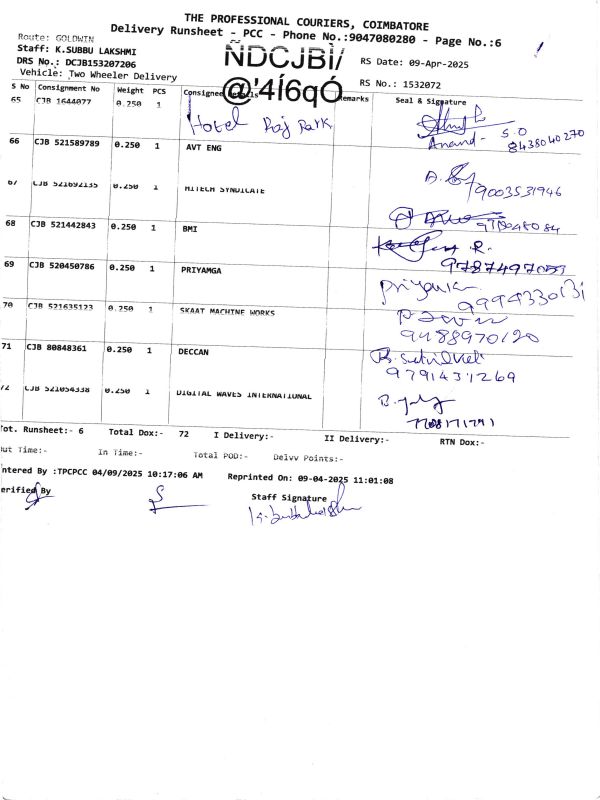 THE PROFESSIONAL COURIERS, COIMBATORE
Delivery Runsheet - PCC - Phone No.:9047080280 - Page No.:6
Route: GOLDWIN
Staff: K.SUBBU LAKSHMI
DRS No.: DCJB153207206
Vehicle: Two Wheeler Delivery
ÑDCJBÌ/
@'4Í6qÓ
RS Date: 09-Apr-2025
RS No.: 1532072
S No Consignment No Weight PCS Consignee Details Remarks Seal & Signature
65 CJB 1644077 0.250 1 Hotel Raj Park
Anand - S.O
8438040270
66 CJB 521589789 0.250 1 AVT ENG
9003531946
67 CJB 521692135 0.250 1 HITECH SYNDICATE
68 CJB 521442843 0.250 1 BMI
69 CJB 520450786 0.250 1 PRIYAMGA
Priyanka
70 CJB 521635123 0.250 1 SKAAT MACHINE WORKS
9488970120
71 CJB 80848361 0.250 1 DECCAN
9791437269
72 CJB 521054338 0.250 1 DIGITAL WAVES INTERNATIONAL
Tot. Runsheet:- 6 Total Dox:- 72 I Delivery:- II Delivery:- RTN Dox:-
Out Time:- In Time:- Total POD:- Delvv Points:-
ntered By :TPCPCC 04/09/2025 10:17:06 AM Reprinted On: 09-04-2025 11:01:08
erified By
Staff Signature